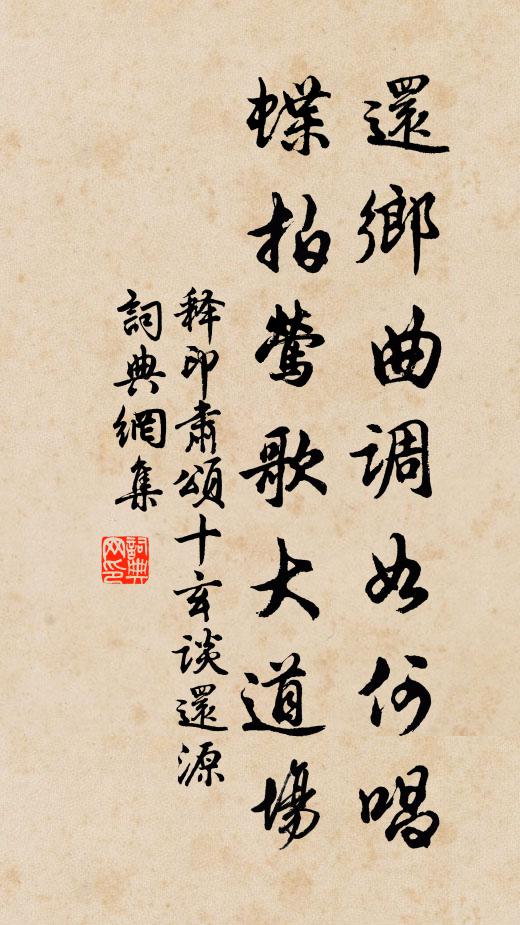 還鄉曲調如何唱
蝶拍鶯歌大道場
释印肅頌十玄談還源
詞典網集
詞典網印